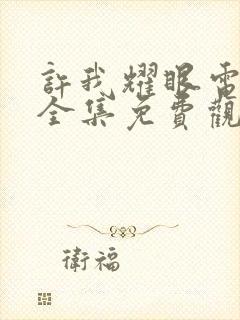 許我耀眼電
全集免費觀
衛福